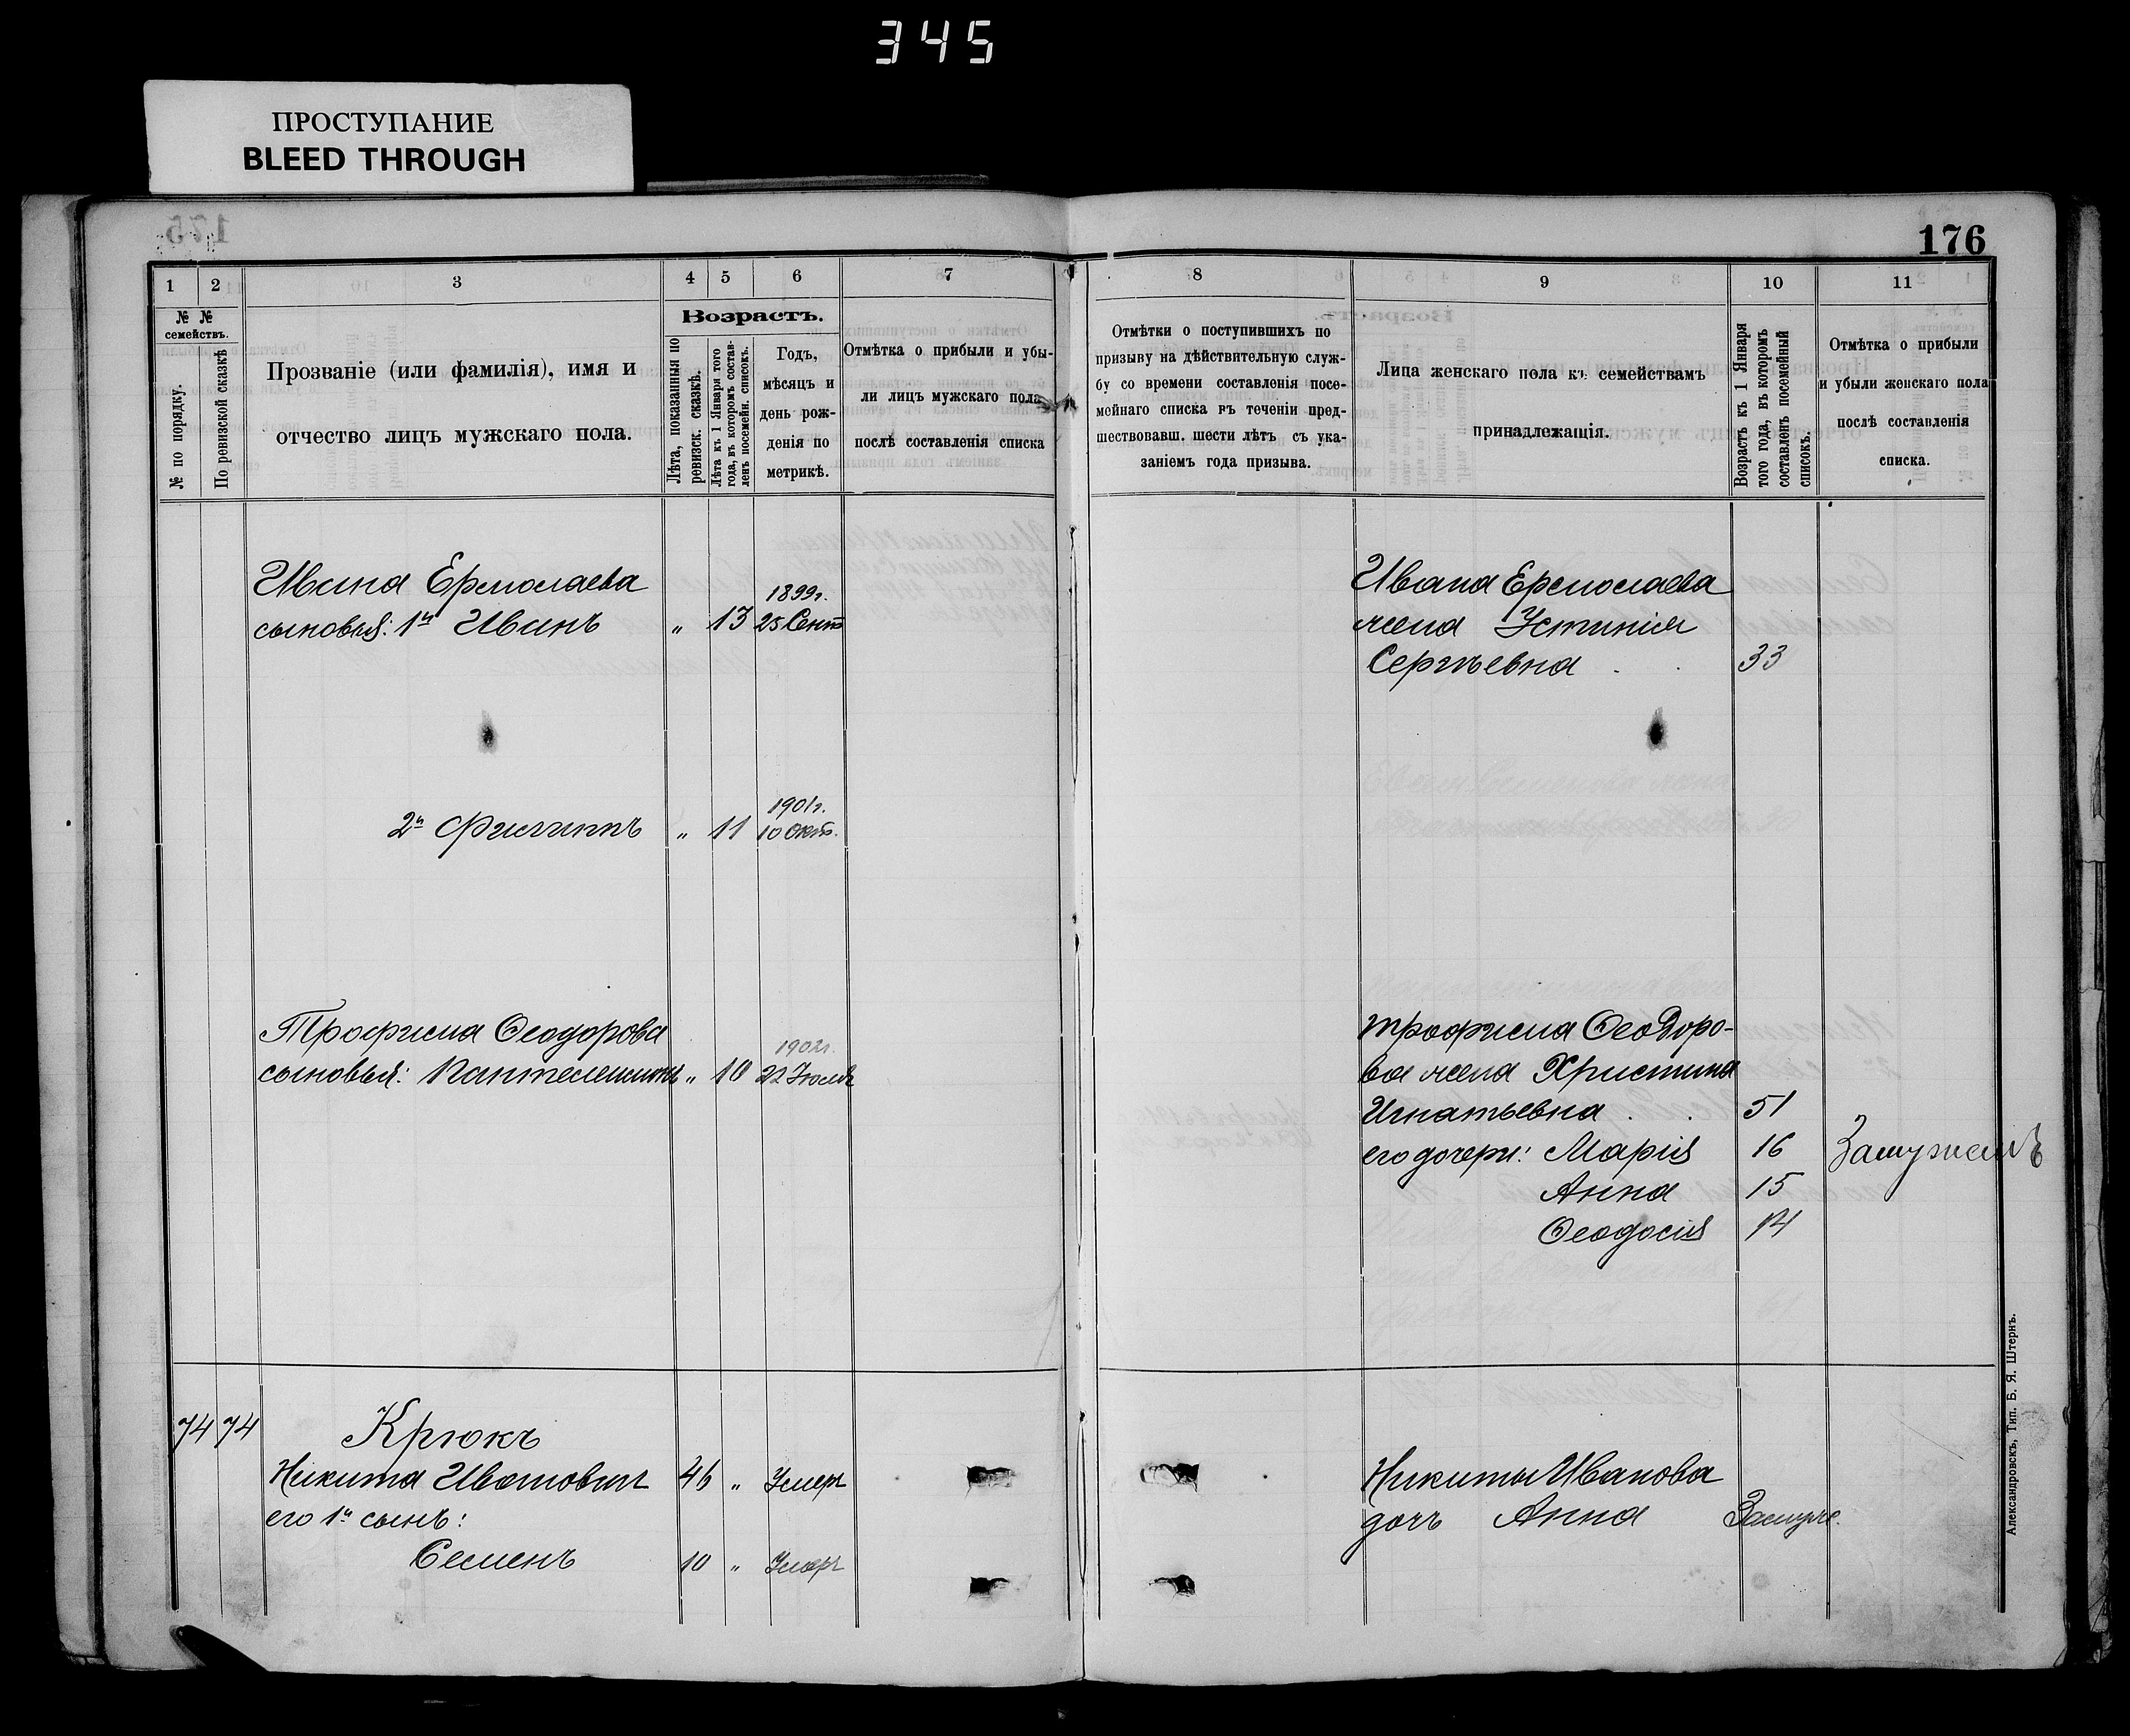 345
ПРОСТУПАНИЕ
BLEED THROUGH
176
1
2
3
4
5
6
7
№ №
семействъ.
№ по порядку.
По ревизской сказкѣ
Прозваніе (или фамилія), имя и
отчество лицъ мужскаго пола.
Возрастъ.
Лѣта, показанныя по
ревизск. сказкѣ.
Лѣта къ 1 Января того
года, въ которомъ состав-
ленъ посемейн. списокъ.
Годъ,
мѣсяцъ и
день рож-
денія по
метрикѣ.
Отмѣтка о прибыли и убы-
ли лицъ мужскаго пола
послѣ составленія списка
Ивана Ермолаева
1899г.
сыновья: 1й Иванъ „ 13 25 Сент
1901г.
2й Филиппъ „ 11 10 Окт.
Трофима Ѳеодорова
1902г.
сыновья: Пантелеимонъ „ 10 22 Іюля
74 74 Крюкъ
Никита Ивановичъ 46 „ Умеръ
его 1й сынъ:
Семенъ 10 „ Умеръ
8
9
10
11
Отмѣтки о поступившихъ по
призыву на дѣйствительную служ-
бу со времени составленія посе-
мейнаго списка въ теченіи пред-
шествовавш. шести лѣтъ съ ука-
заніемъ года призыва.
Лица женскаго пола къ семействамъ
принадлежащія.
Возрастъ къ 1 Января
того года, въ которомъ
составленъ посемейный
списокъ.
Отмѣтка о прибыли
и убыли женскаго пола
послѣ составленія
списка.
Ивана Ермолаева
жена Устинія
Сергѣевна 33
Трофима Ѳеодоро-
ва жена Христина
Игнатьевна 51
его дочери: Марія 16 Замужемъ
Анна 15
Ѳеодосія 14
Никиты Иванова
дочь Анна Замуже.
Александровскъ, Тип. Б. Я. Штернъ.